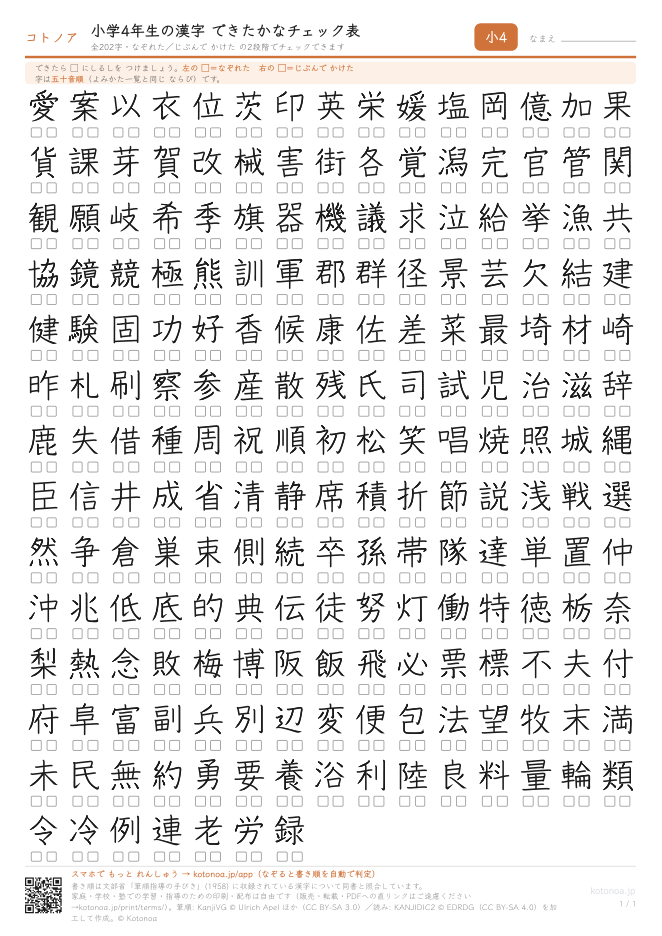 コトノア
小学4年生の漢字 できたかなチェック表
全202字・なぞれた／じぶんで かけた の2段階でチェックできます
小4
なまえ
できたら □ にしるしを つけましょう。左の □＝なぞれた　右の □＝じぶんで かけた
字は五十音順（よみかた一覧と同じ ならび）です。
愛 案 以 衣 位 茨 印 英 栄 媛 塩 岡 億 加 果
貨 課 芽 賀 改 械 害 街 各 覚 潟 完 官 管 関
観 願 岐 希 季 旗 器 機 議 求 泣 給 挙 漁 共
協 鏡 競 極 熊 訓 軍 郡 群 径 景 芸 欠 結 建
健 験 固 功 好 香 候 康 佐 差 菜 最 埼 材 崎
昨 札 刷 察 参 産 散 残 氏 司 試 児 治 滋 辞
鹿 失 借 種 周 祝 順 初 松 笑 唱 焼 照 城 縄
臣 信 井 成 省 清 静 席 積 折 節 説 浅 戦 選
然 争 倉 巣 束 側 続 卒 孫 帯 隊 達 単 置 仲
沖 兆 低 底 的 典 伝 徒 努 灯 働 特 徳 栃 奈
梨 熱 念 敗 梅 博 阪 飯 飛 必 票 標 不 夫 付
府 阜 富 副 兵 別 辺 変 便 包 法 望 牧 末 満
未 民 無 約 勇 要 養 浴 利 陸 良 料 量 輪 類
令 冷 例 連 老 労 録
スマホで もっと れんしゅう → kotonoa.jp/app（なぞると書き順を自動で判定）
書き順は文部省「筆順指導の手びき」(1958) に収録されている漢字について同書と照合しています。
家庭・学校・塾での学習・指導のための印刷・配布は自由です（販売・転載・PDFへの直リンクはご遠慮ください
→kotonoa.jp/print/terms/）。筆順: KanjiVG © Ulrich Apel ほか（CC BY-SA 3.0）／読み: KANJIDIC2 © EDRDG（CC BY-SA 4.0）を加
工して作成。© Kotonoa
kotonoa.jp
1 / 1